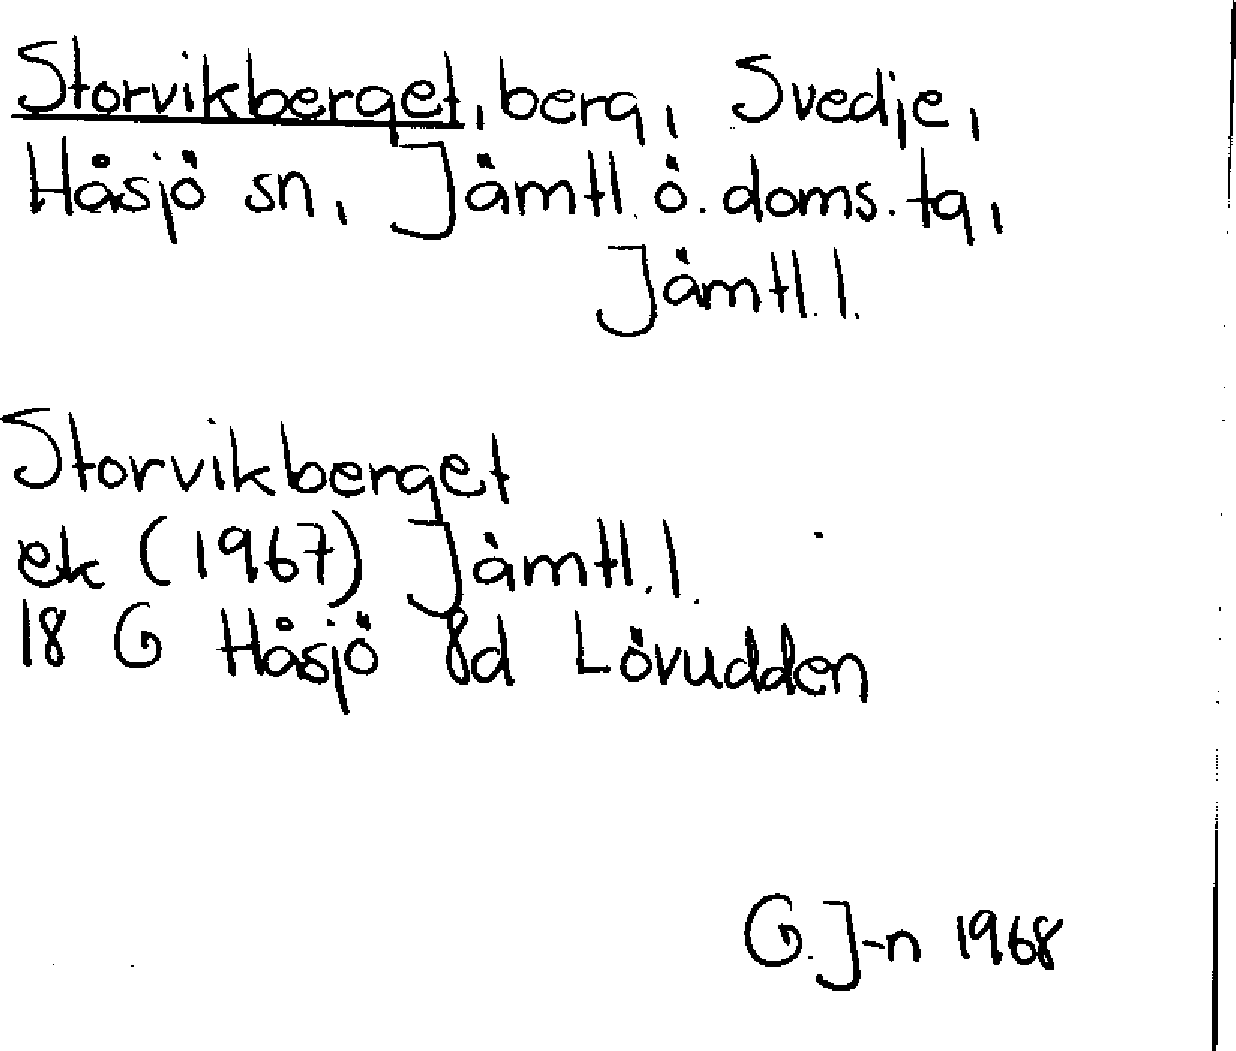 Storvikberget, berg, Svedje,
Håsjö sn, Jämtl. ö. doms. tg,
Jämtl. l.
Storvikberget
ek (1967) Jämtl. l.
18 G Håsjö 8d Lövudden
G. J-n 1968